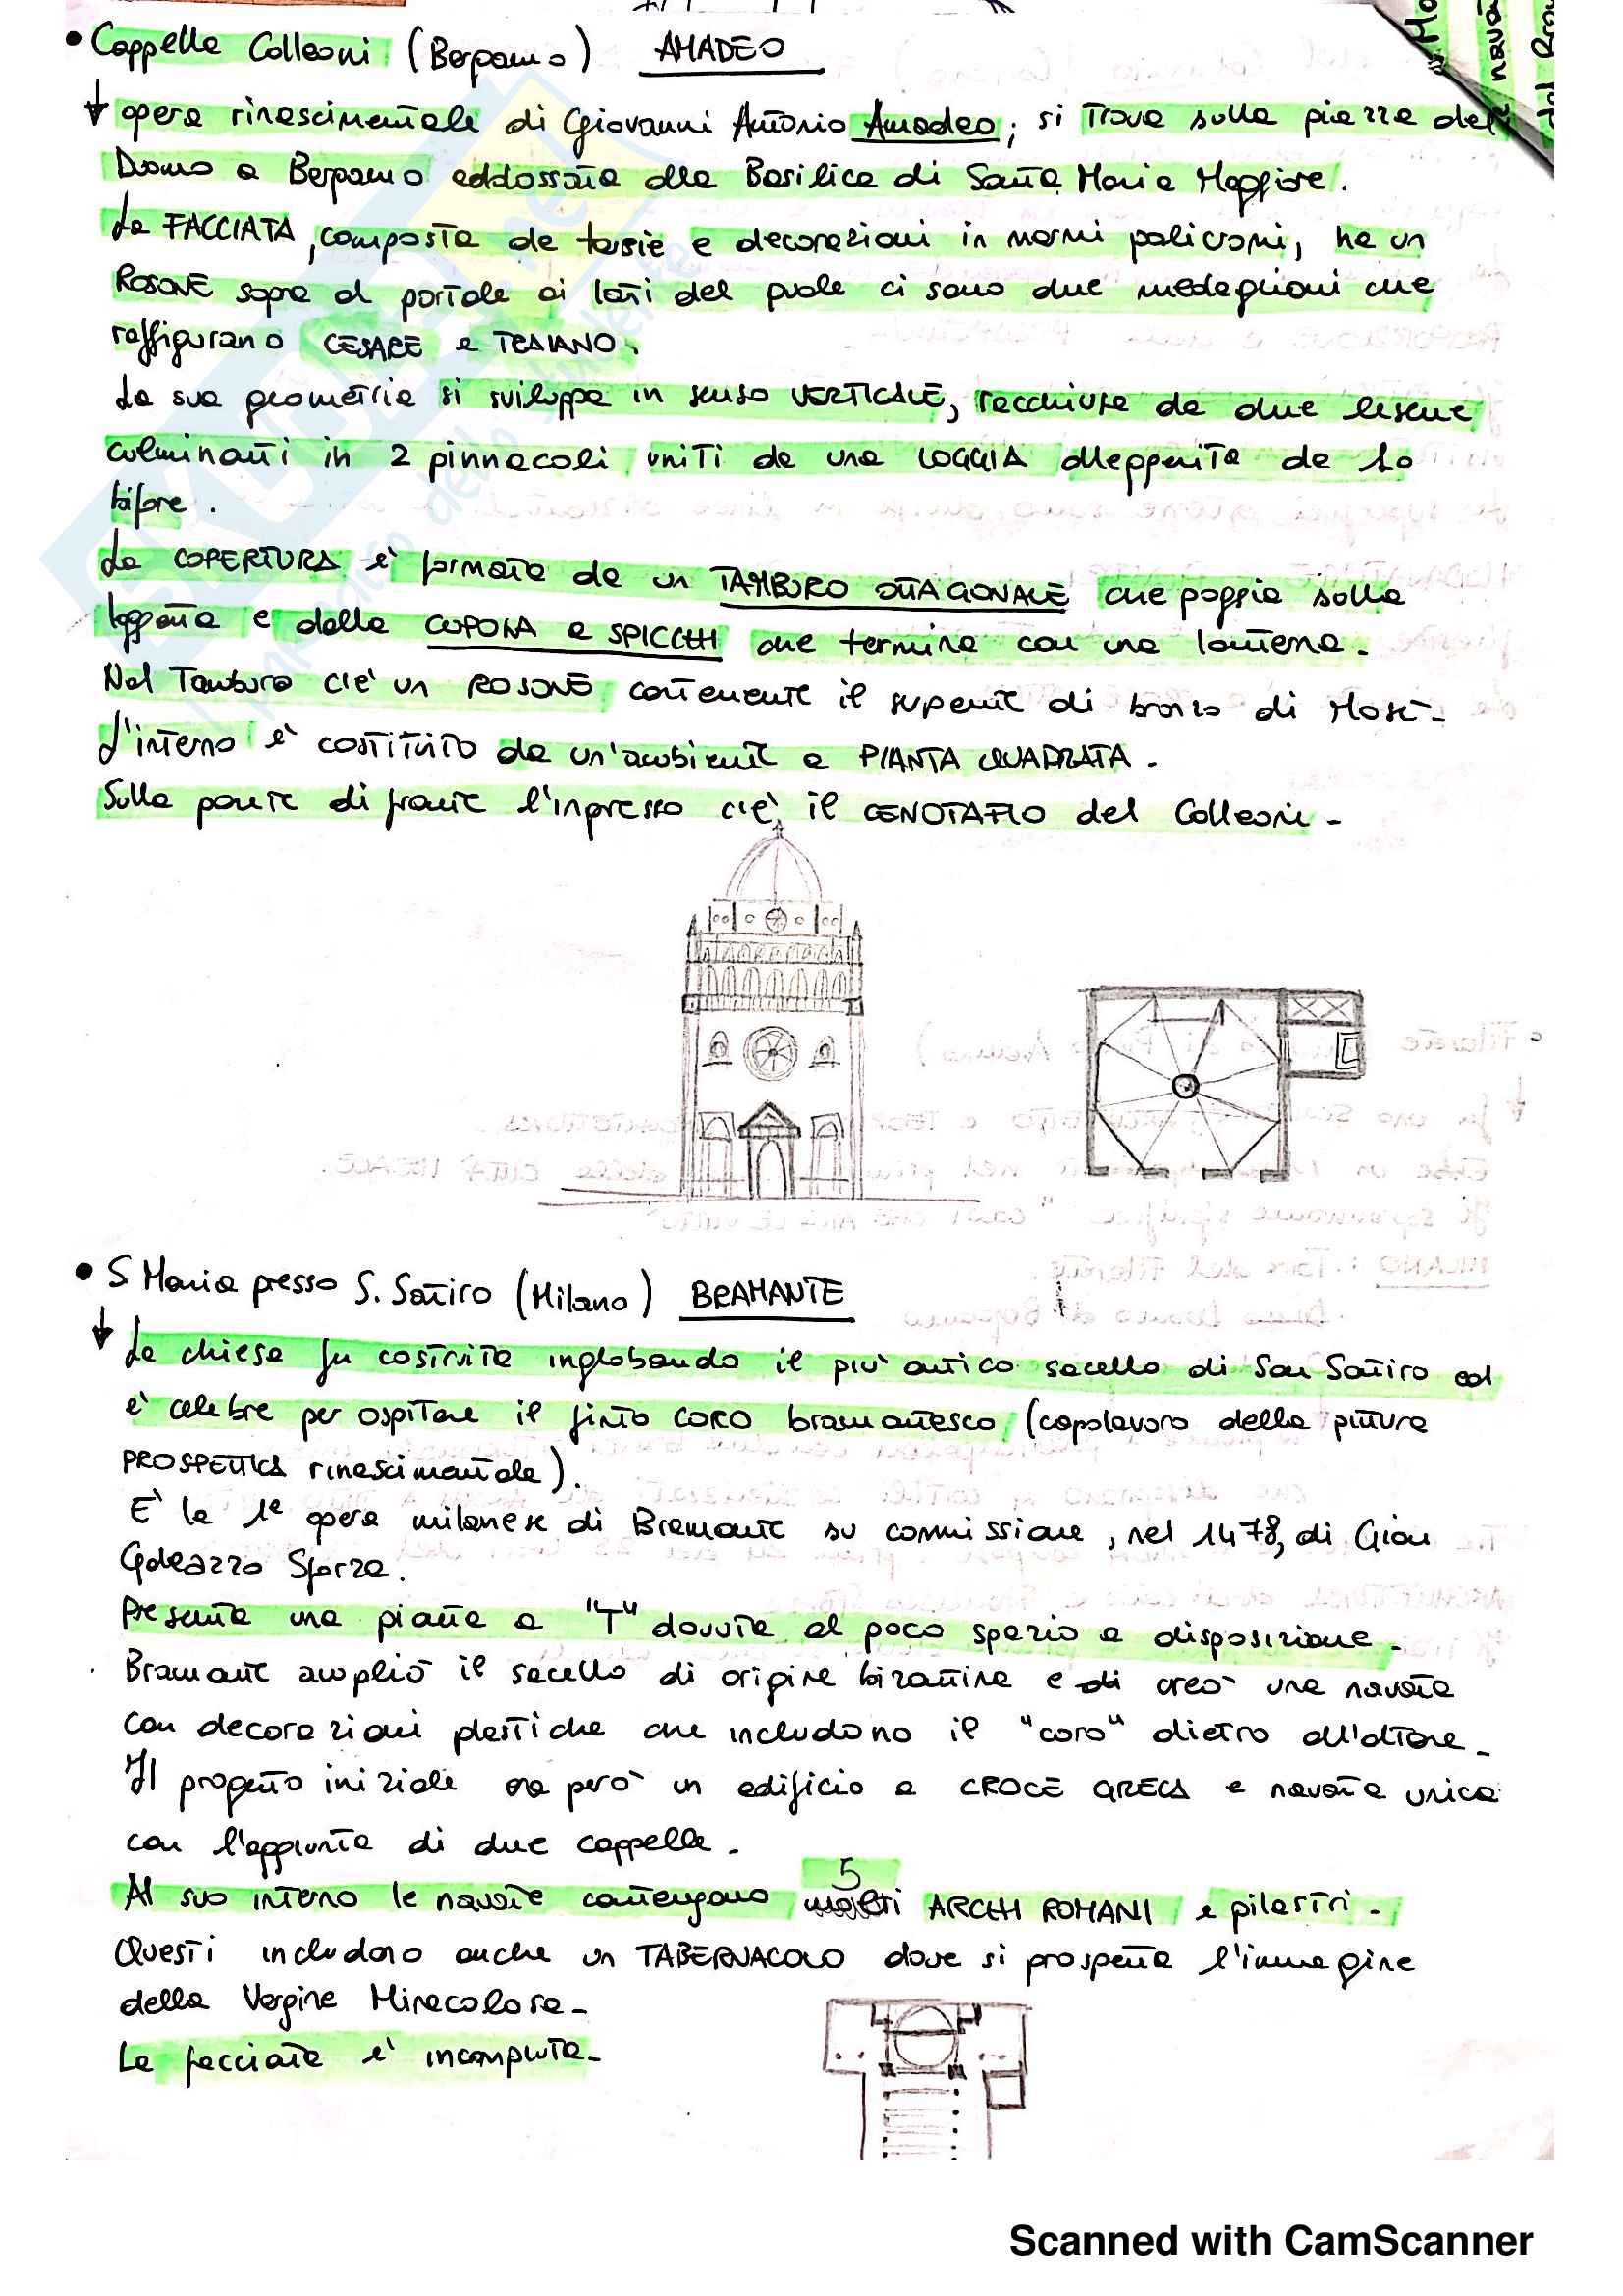 • Cappella Colleoni (Bergamo) AMADEO
↓ opera rinascimentale di Giovanni Antonio Amadeo; si trova sulla piazza del
Duomo a Bergamo addossata alla Basilica di Santa Maria Maggiore.
La FACCIATA, composta da tarsie e decorazioni in marmi policromi, ha un
ROSONE sopra al portale ai lati del quale ci sono due medaglioni che
raffigurano CESARE e TRAIANO.
La sua geometria si sviluppa in senso VERTICALE, racchiusa da due lesene
culminanti in 2 pinnacoli uniti da una LOGGIA alleggerita da 10
bifore.
La COPERTURA è formata da un TAMBURO OTTAGONALE che poggia sulla
loggetta e dalla CUPOLA a SPICCHI che termina con una lanterna.
Nel Tamburo c'è un ROSONE contenente il serpente di bronzo di Mosè-
L'interno è costituito da un'ambiente a PIANTA QUADRATA.
Sulla parete di fronte l'ingresso c'è il CENOTAFIO del Colleoni-
• S Maria presso S. Satiro (Milano) BRAMANTE
↓ La chiesa fu costruita inglobando il più antico sacello di San Satiro ed
è celebre per ospitare il finto CORO bramantesco (capolavoro della pittura
PROSPETTICA rinascimentale).
E' la 1ª opera milanese di Bramante su commissione, nel 1478, di Gian
Galeazzo Sforza.
Presenta una pianta a "T" dovuta al poco spazio a disposizione-
Bramante ampliò il sacello di origine bizantina e di creò una navata
con decorazioni plastiche che includono il "coro" dietro all'altare-
Il progetto iniziale era però un edificio a CROCE GRECA e navata unica
con l'aggiunta di due cappelle-
Al suo interno le navate contengono 5 molti ARCHI ROMANI e pilastri-
Questi includono anche un TABERNACOLO dove si prospetta l'immagine
della Vergine Miracolosa-
La facciata è incompiuta-
Scanned with CamScanner